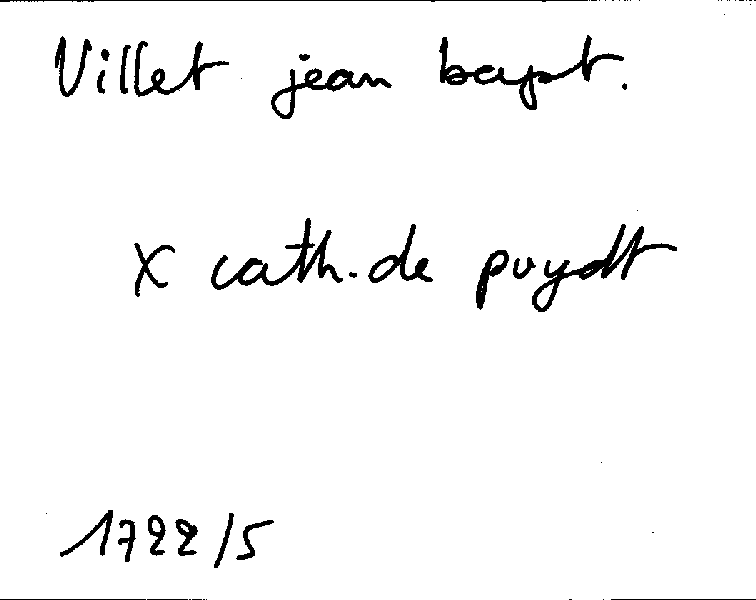 Villet jean bapt.
x cath. de puydt
1722/5